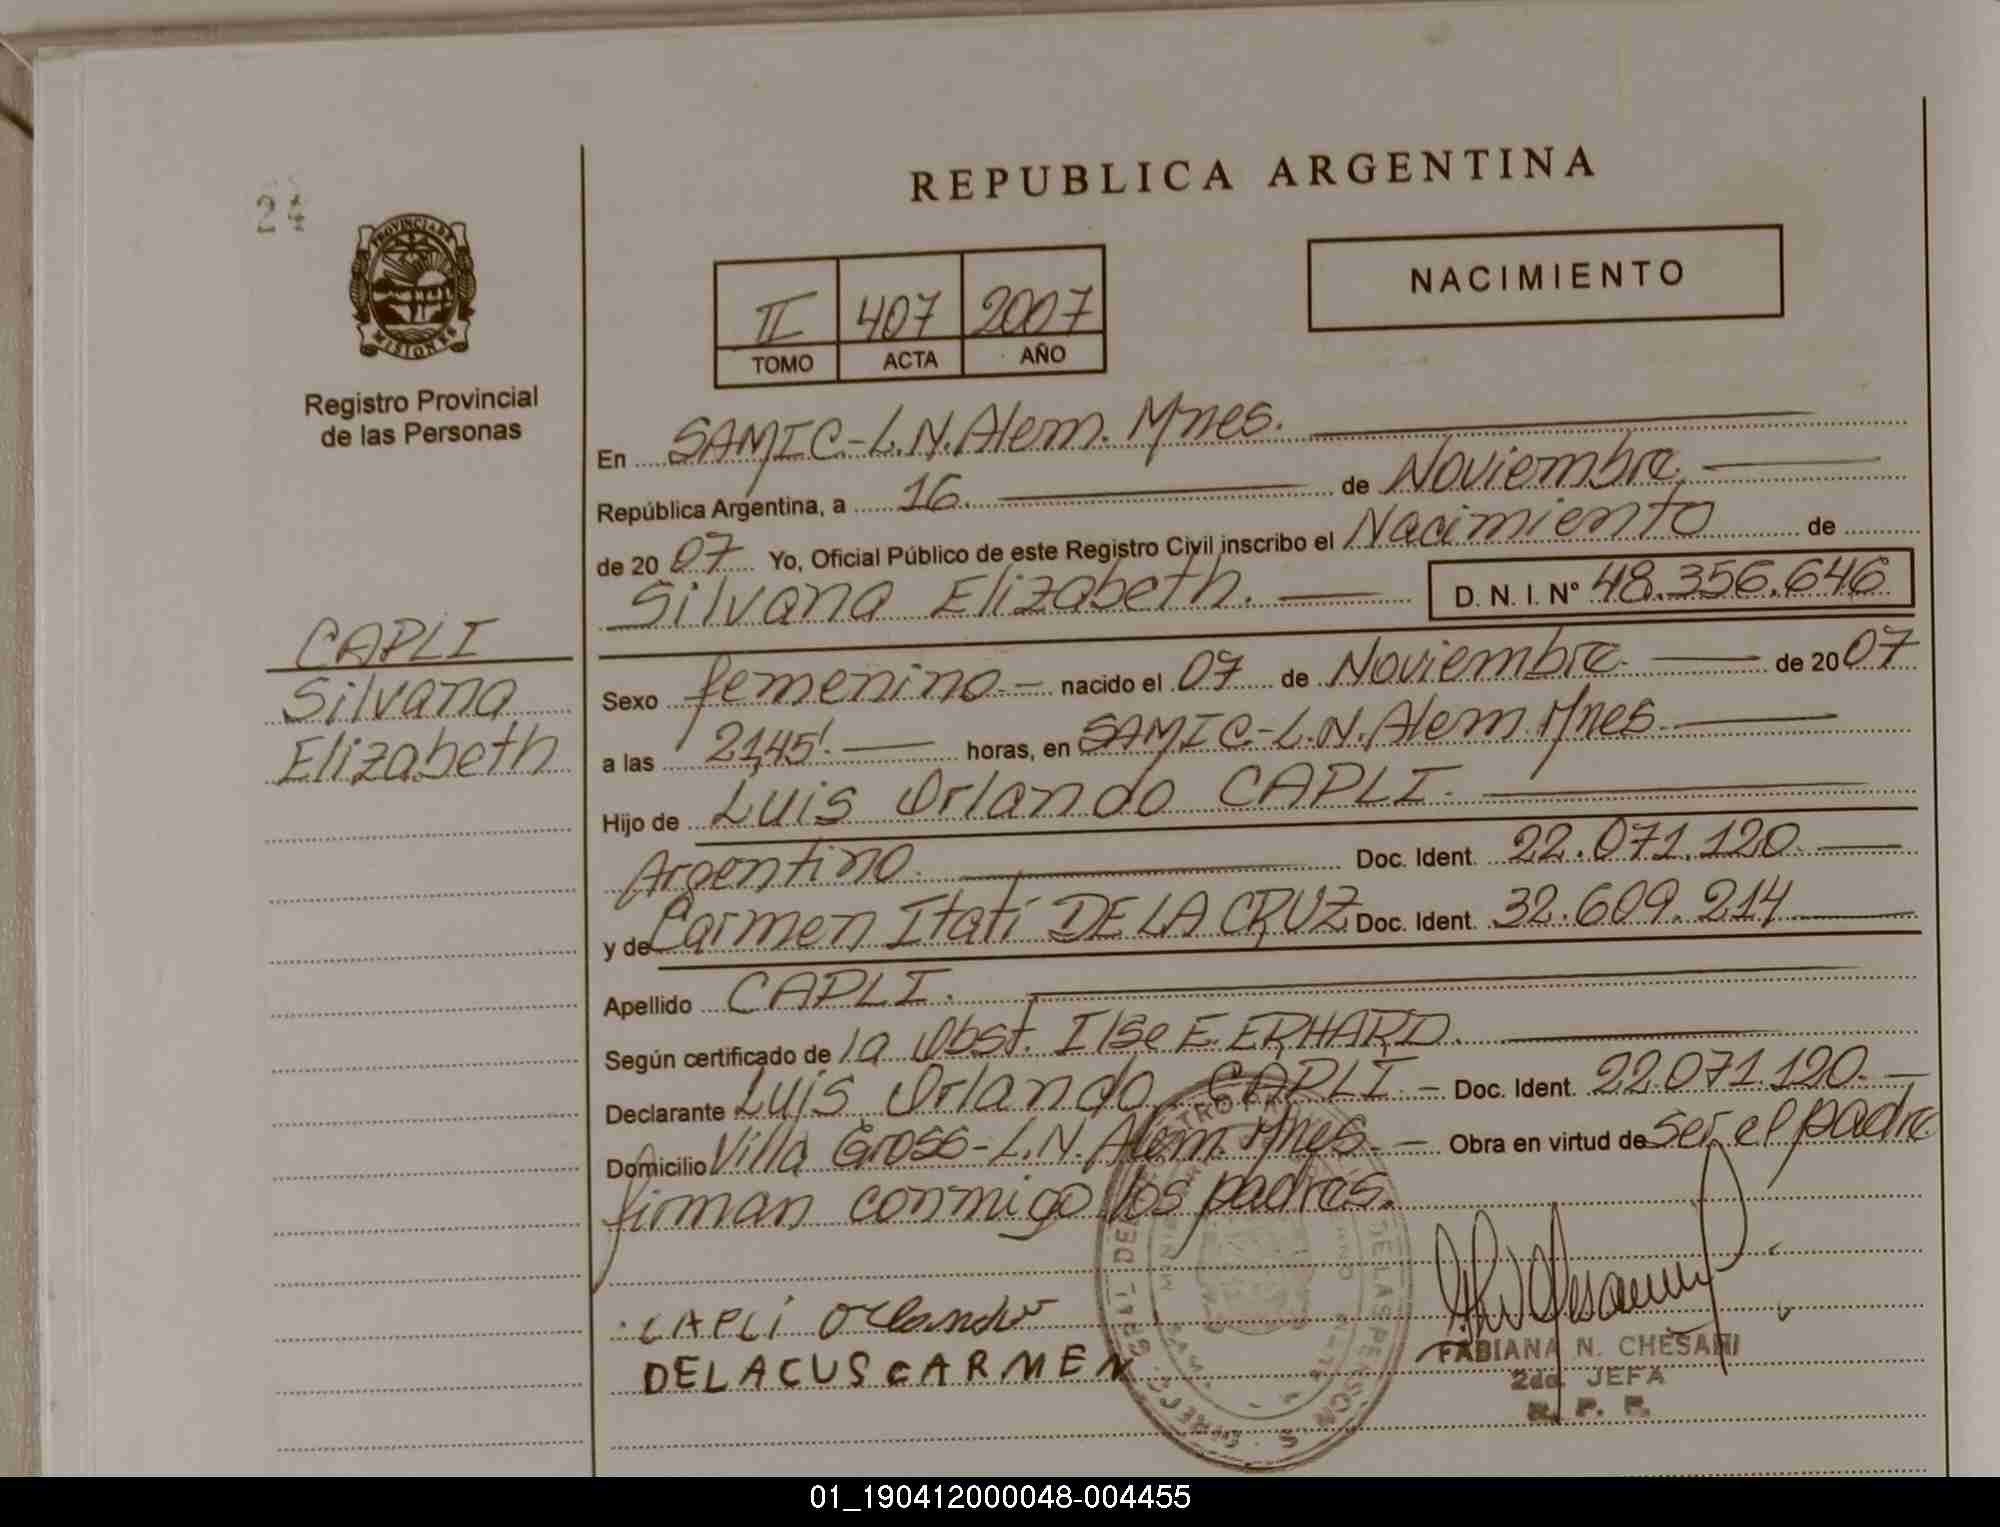 24
PROVINCIA DE
MISIONES
Registro Provincial
de las Personas
CAPLI
Silvana
Elizabeth
REPUBLICA ARGENTINA
II 407 2007
TOMO ACTA AÑO
NACIMIENTO
En SAMIC-L.N.Alem. Mnes.
República Argentina, a 16. de Noviembre
de 2007 Yo, Oficial Público de este Registro Civil inscribo el Nacimiento de
Silvana Elizabeth. D. N. I. Nº 48.356.646
Sexo femenino.- nacido el 07 de Noviembre. de 2007
a las 21,45'. horas, en SAMIC-L.N.Alem.Mnes.
Hijo de Luis Orlando CAPLI.
Argentino. Doc. Ident. 22.071.120.
y de Carmen Itatí DE LA CRUZ Doc. Ident. 32.609.214
Apellido CAPLI.
Según certificado de la Obst. Ilse E. ERHARD.
Declarante Luis Orlando CAPLI.- Doc. Ident. 22.071.120.
Domicilio Villa Gross-L.N.Alem.Mnes.- Obra en virtud de ser el padre
firman conmigo los padres.
CAPLI Orlando
DELACUSCARMEN
FABIANA N. CHESANI
2da. JEFA
R. P. P.
01_190412000048-004455